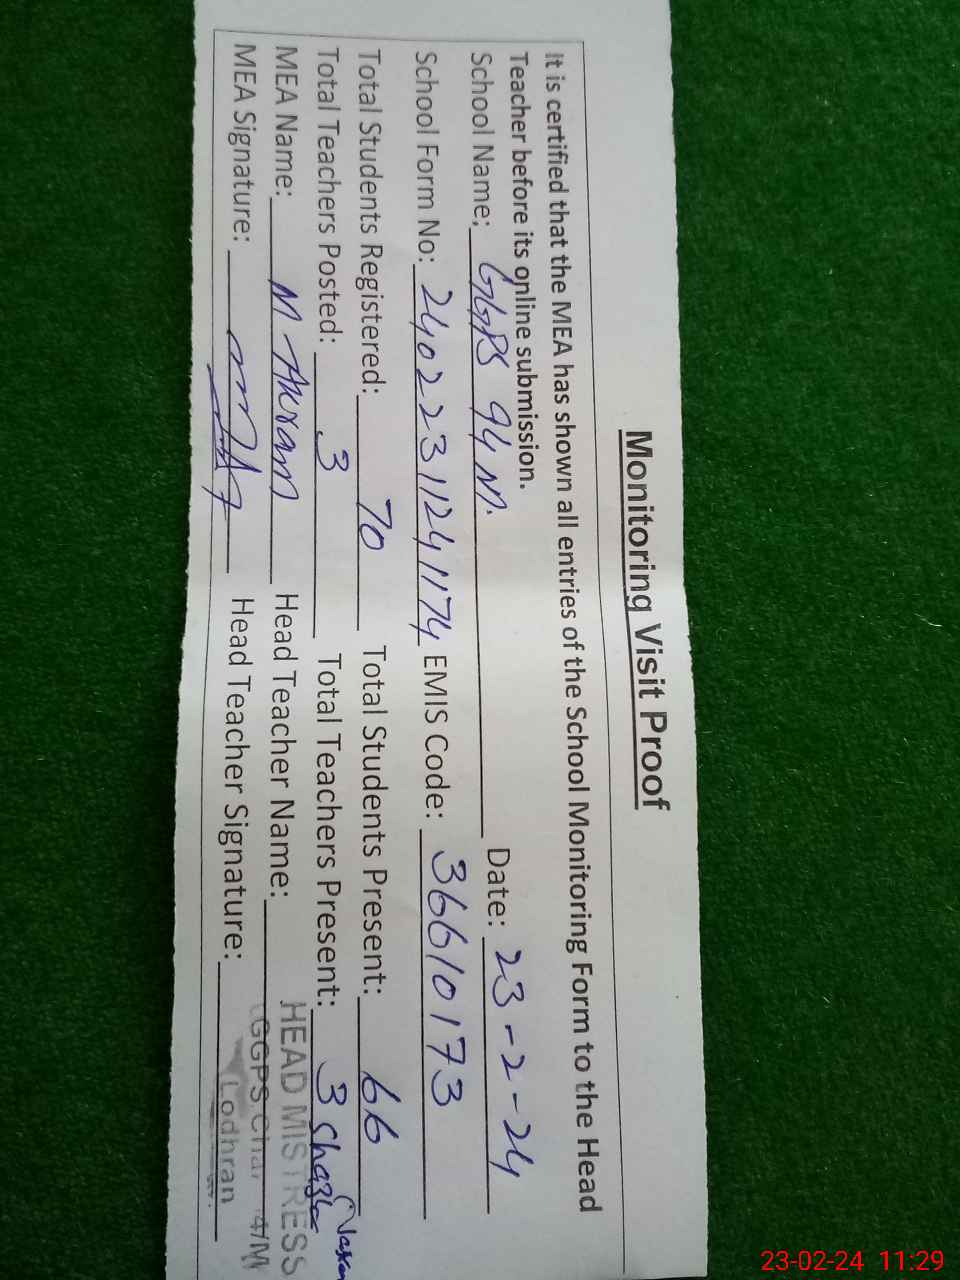 Monitoring Visit Proof
It is certified that the MEA has shown all entries of the School Monitoring Form to the Head
Teacher before its online submission.
School Name: GGPS 94 M. Date: 23-2-24
School Form No: 24022311241174 EMIS Code: 36610173
Total Students Registered: 70 Total Students Present: 66
Total Teachers Posted: 3 Total Teachers Present: 3 Shazia
MEA Name: M Akram Head Teacher Name: HEAD MISTRESS
MEA Signature: Head Teacher Signature: GGPS Chak 4/M
Lodhran
23-02-24 11:29